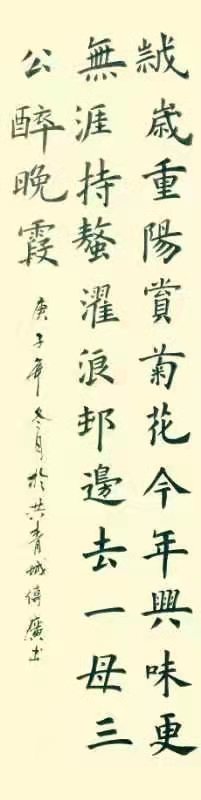 歲重陽賞菊花今年興味更
無涯持螯濯浪邨邊去一母三
公醉晚霞
庚子年冬月於共青城傅廣书